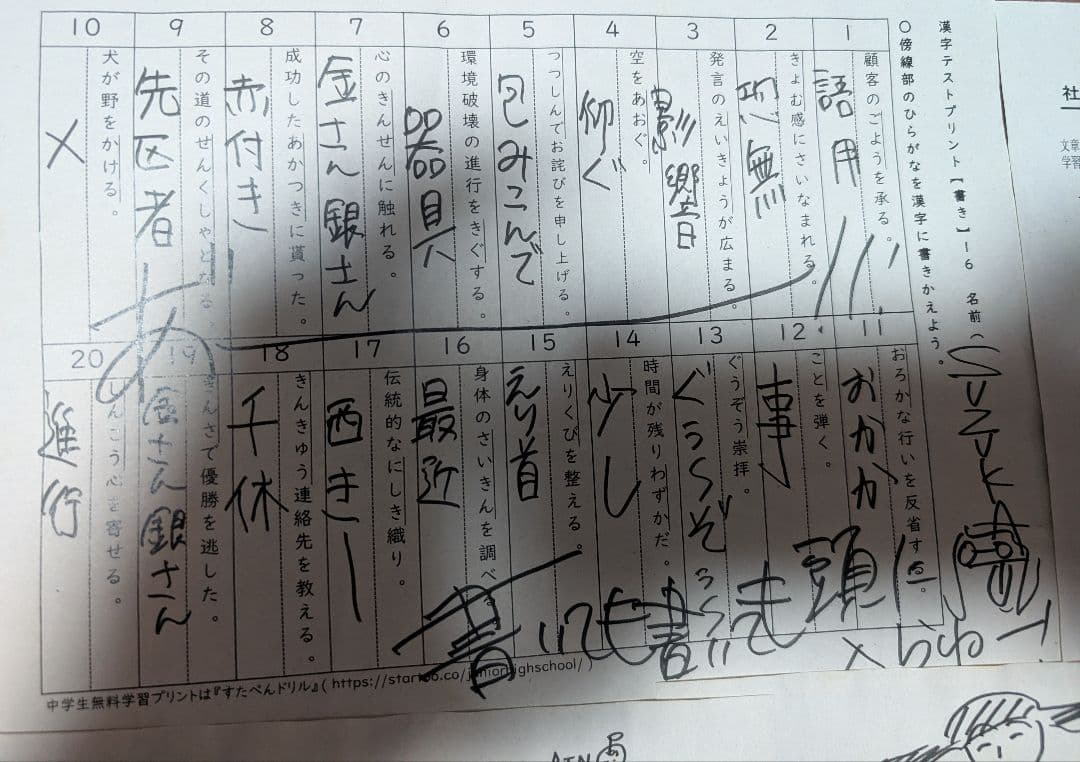 漢字テストプリント【書き】－6　名前（SUZUKA
〇傍線部のひらがなを漢字に書きかえよう。
1
顧客のごようを承る。
語用
2
きょむ感にさいなまれる。
恐無
3
発言のえいきょうが広まる。
影響
4
空をあおぐ。
仰ぐ
5
つつしんでお詫びを申し上げる。
包みこんで
6
環境破壊の進行をきぐする。
器具
7
心のきんせんに触れる。
金さん銀さん
8
成功したあかつきに貰った。
赤付き
9
その道のせんくしゃとなる。
先区者
10
犬が野をかける。
メ
11
おろかな行いを反省する。
おかか
12
ことを弾く。
事
13
ぐうぞう崇拝。
ぐうぞう
14
時間が残りわずかだ。
少し
15
えりくびを整える。
えり首
16
身体のさいきんを調べる。
最近
17
伝統的なにしき織り。
西きー
18
きんきゅう連絡先を教える。
千休
19
きんさで優勝を逃した。
金さん銀さん
20
しんこう心を寄せる。
進行
あ
頭に
入らねー!
書いても書いても
中学生無料学習プリントは『すたぺんドリル』( https://startoo.co/juniorhighschool/ )
社
文章
学習